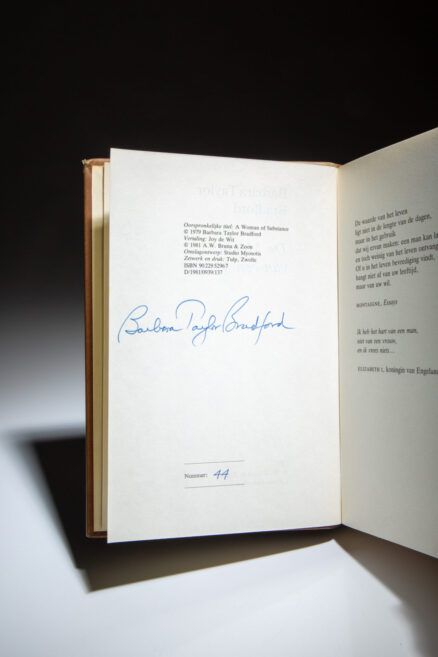 Oorspronkelijke titel: A Woman of Substance
© 1979 Barbara Taylor Bradford
Vertaling: Joy de Wit
© 1981 A.W. Bruna & Zoon
Omslagontwerp: Studio Myosotis
Zetwerk en druk: Tulp, Zwolle
ISBN 90 229 5296 7
D/1981/0939/137
Barbara Taylor Bradford
Nummer: 44
De waarde van het leven
ligt niet in de lengte van de dagen,
maar in het gebruik
dat wij ervan maken: een man kan lan
en toch weinig van het leven ontvang
Of u in het leven bevrediging vindt,
hangt niet af van uw leeftijd,
maar van uw wil.
MONTAIGNE, Essays
Ik heb het hart van een man,
niet van een vrouw,
en ik vrees niets...
ELIZABETH I, koningin van Engeland